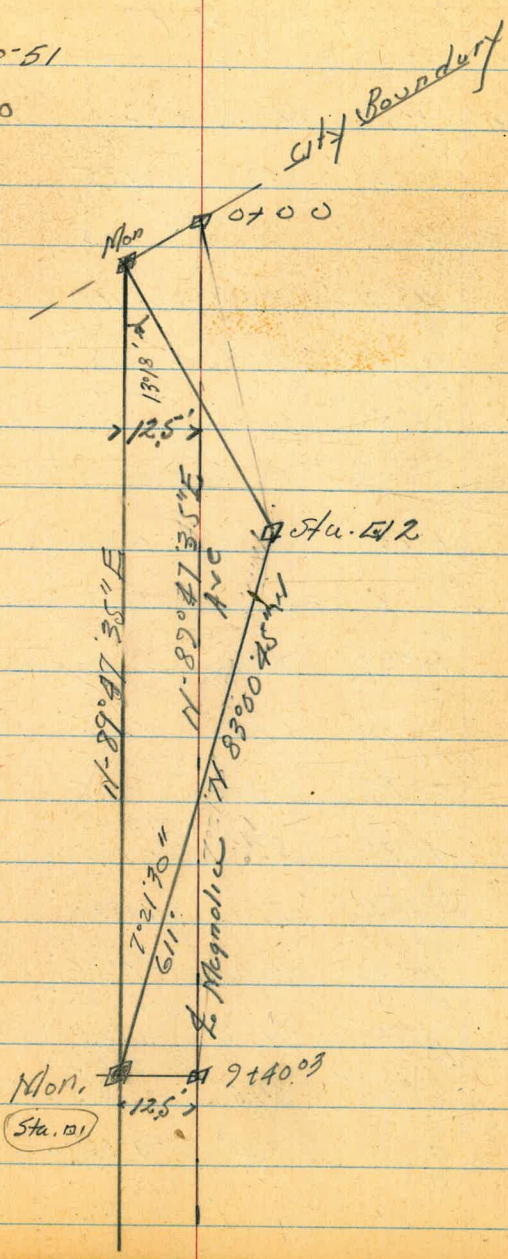 -51
0
City Boundary
0+00
Mon
13°18'
12.5'
Sta. 2
N-89°47'35"E
N-89°47'35"E
Ave
N 83°00'45"W
7°21'30"
611'
℄ Magnolia
Mon.
9+40.03
12.5'
Sta. 1